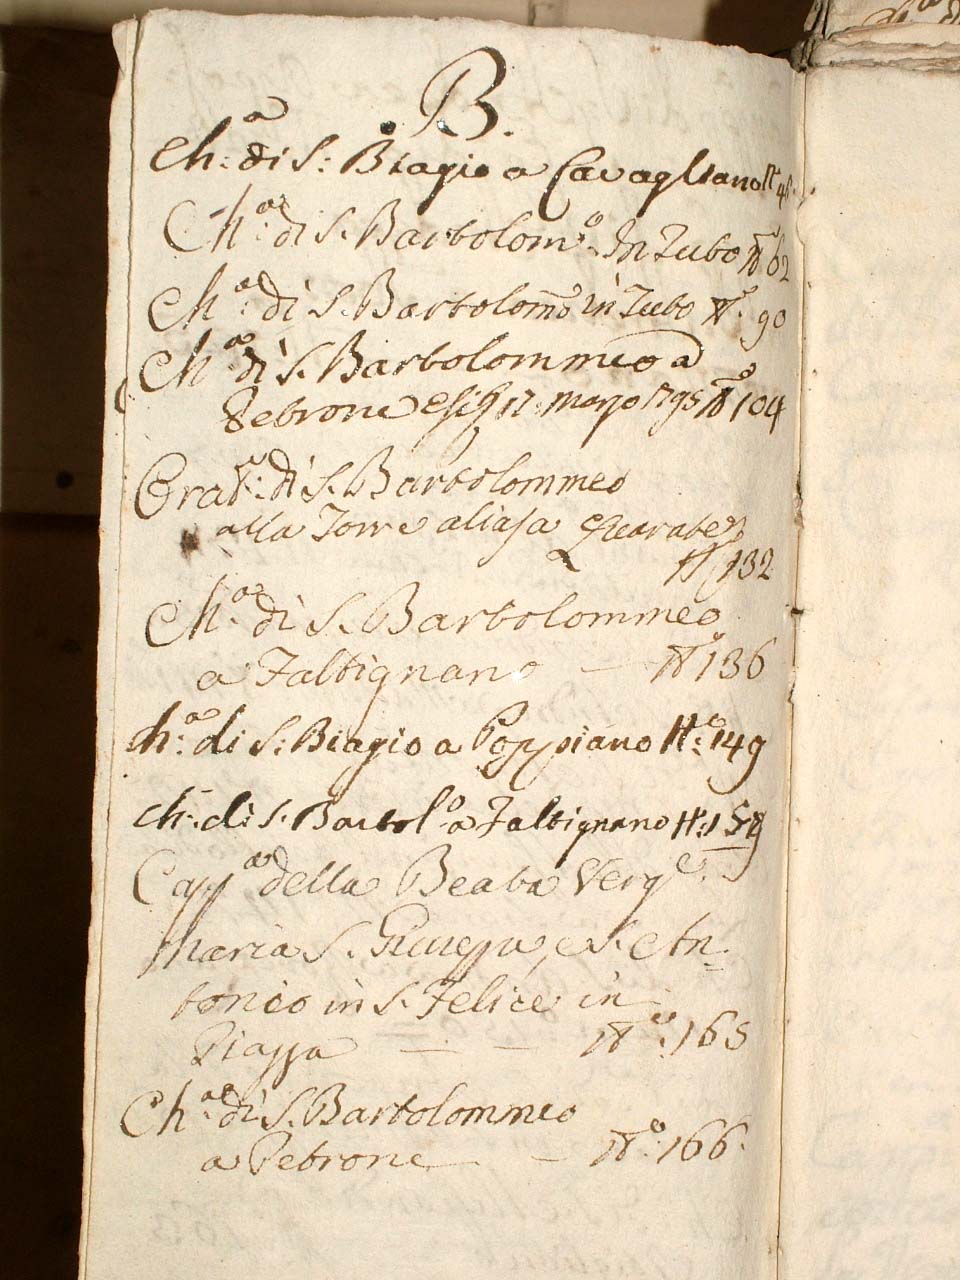 .B.
Ch:a di S: Biagio a Cavagliano N.o
Ch:a di S. Bartolom:o In Tubo N.o 62
Ch:a di S. Bartolom:o in Tubo N.o 90
Ch:a di S. Bartolommeo a
Petrone 17. marzo 1795 N.o 104
Orat.o di S. Bartolommeo
alla Torre aliasa
N.o 132
Ch:a di S. Bartolommeo
a Faltignano — N.o 136
Ch:a di S: Biagio a Poppiano N.o: 149
Ch:a di S. Bartol.o a Faltignano N.o:
Capp.a della Beata Verg.e
Maria S. Giuseppe, e S. An=
tonio in S. Felice in
Piazza — — N.o: 165
Ch:a di S. Bartolommeo
a Petrone — N.o: 166.